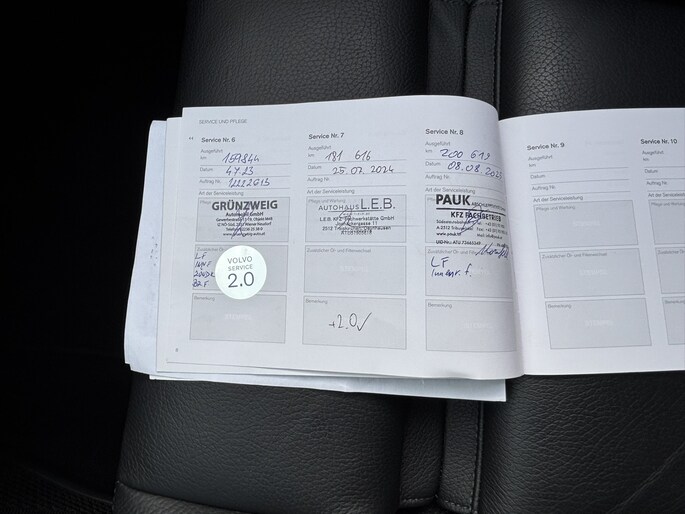 SERVICE UND PFLEGE
Service Nr. 6
Ausgeführt
km 159844
Datum 4.7.23
Auftrag Nr. 1222613
Art der Serviceleistung
Pflege und Wartung
GRÜNZWEIG
Automobil GmbH
Zusätzlicher Öl- und Filterwechsel
LF
VOLVO
SERVICE
2.0
Bemerkung
Service Nr. 7
Ausgeführt
km 181 616
Datum 25.07.2024
Auftrag Nr.
Art der Serviceleistung
Pflege und Wartung
AUTOHAUS L.E.B.
L.E.B. KFZ Fachwerkstätte GmbH
Zusätzlicher Öl- und Filterwechsel
Bemerkung
+2.0✓
Service Nr. 8
Ausgeführt
km 200 619
Datum 08.08.2025
Auftrag Nr.
Art der Serviceleistung
PAUK
KFZ FACHBETRIEB
UID-Nr.: ATU 73463249
Zusätzlicher Öl- und Filterwechsel
LF
Innenr. f.
Bemerkung
Service Nr. 9
Ausgeführt
km
Datum
Auftrag Nr.
Art der Serviceleistung
Pflege und Wartung
Zusätzlicher Öl- und Filterwechsel
Bemerkung
Service Nr. 10
Ausgeführt
km
Datum
Auftrag Nr.